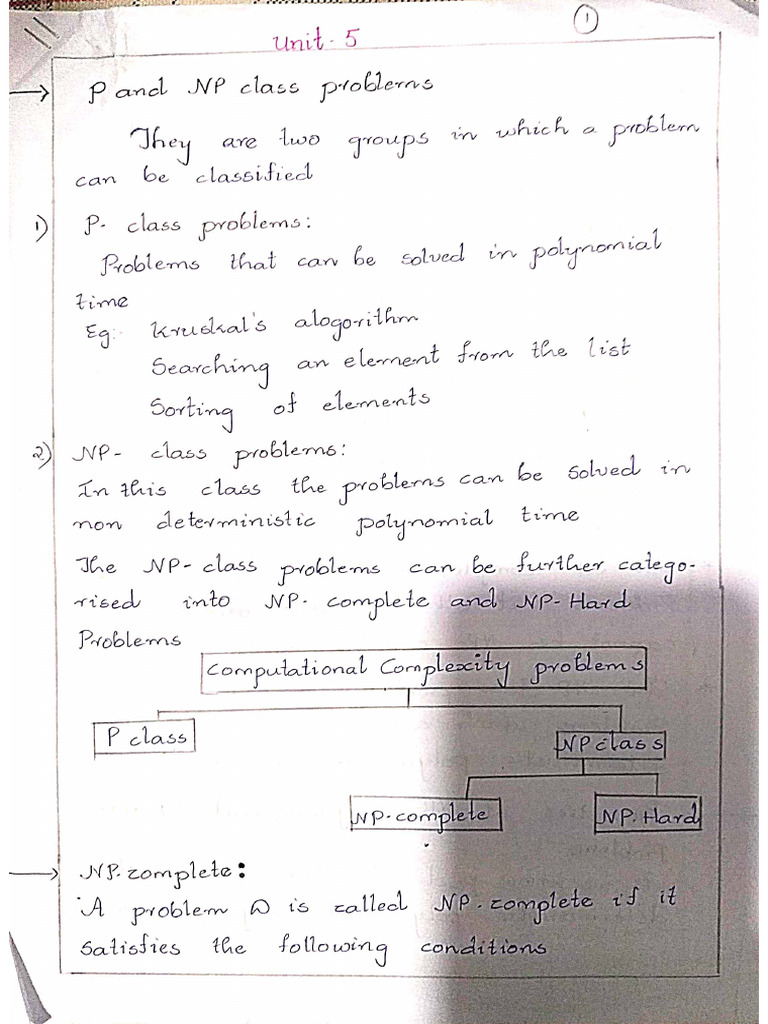 1
Unit-5
P and NP class problems
They are two groups in which a problem
can be classified
1) P- class problems:
Problems that can be solved in polynomial
time
Eg: Kruskal's alogorithm
Searching an element from the list
Sorting of elements
2) NP- class problems:
In this class the problems can be solved in
non deterministic polynomial time
The NP-class problems can be further catego-
rised into NP-complete and NP-Hard
Problems
Computational Complexity problems
P class
NP class
NP-complete
NP-Hard
NP-complete:
A problem D is called NP-complete if it
satisfies the following conditions